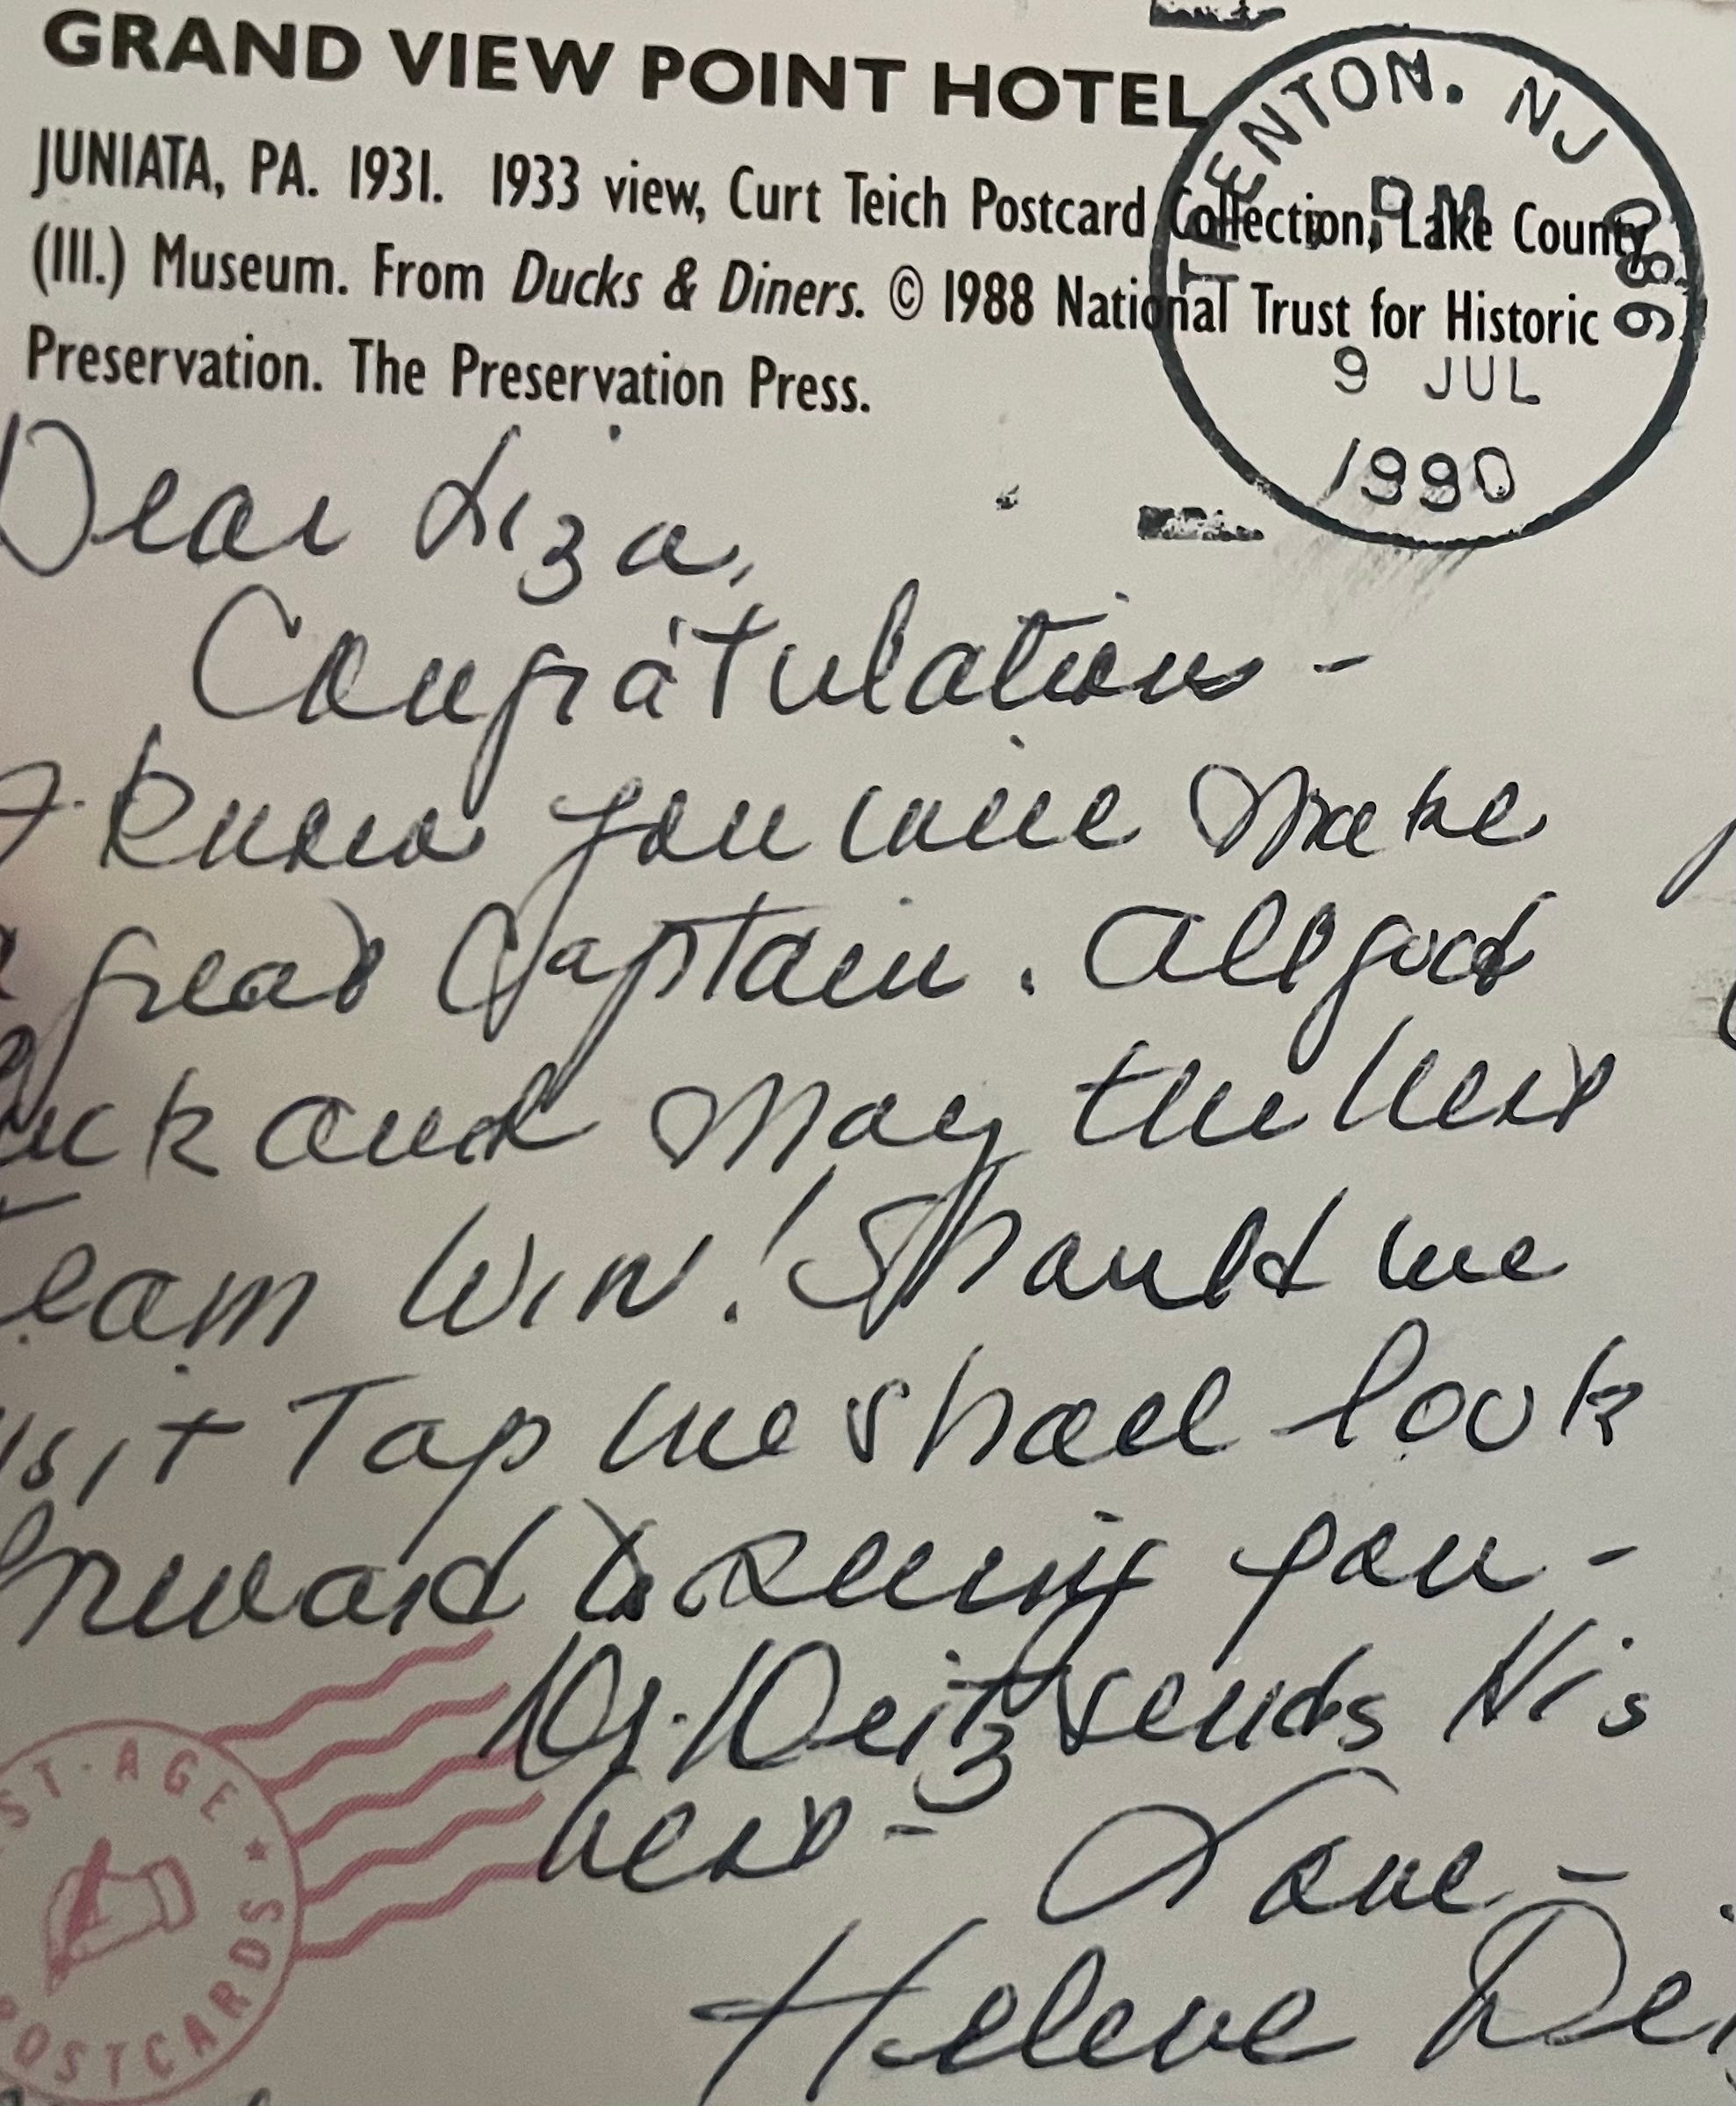 GRAND VIEW POINT HOTEL
JUNIATA, PA. 1931. 1933 view, Curt Teich Postcard Collection, Lake County
(Ill.) Museum. From Ducks & Diners. © 1988 National Trust for Historic
Preservation. The Preservation Press.
TRENTON. NJ 086
PM
9 JUL
1990
Dear Liza,
Congratulations -
I know you will make
a great Captain. All good
luck and may the best
Team WIN! Should we
visit Tap we shall look
forward to seeing you -
Dr. Deitz sends His
best - Love -
Helene Dei
ST-AGE
POSTCARDS